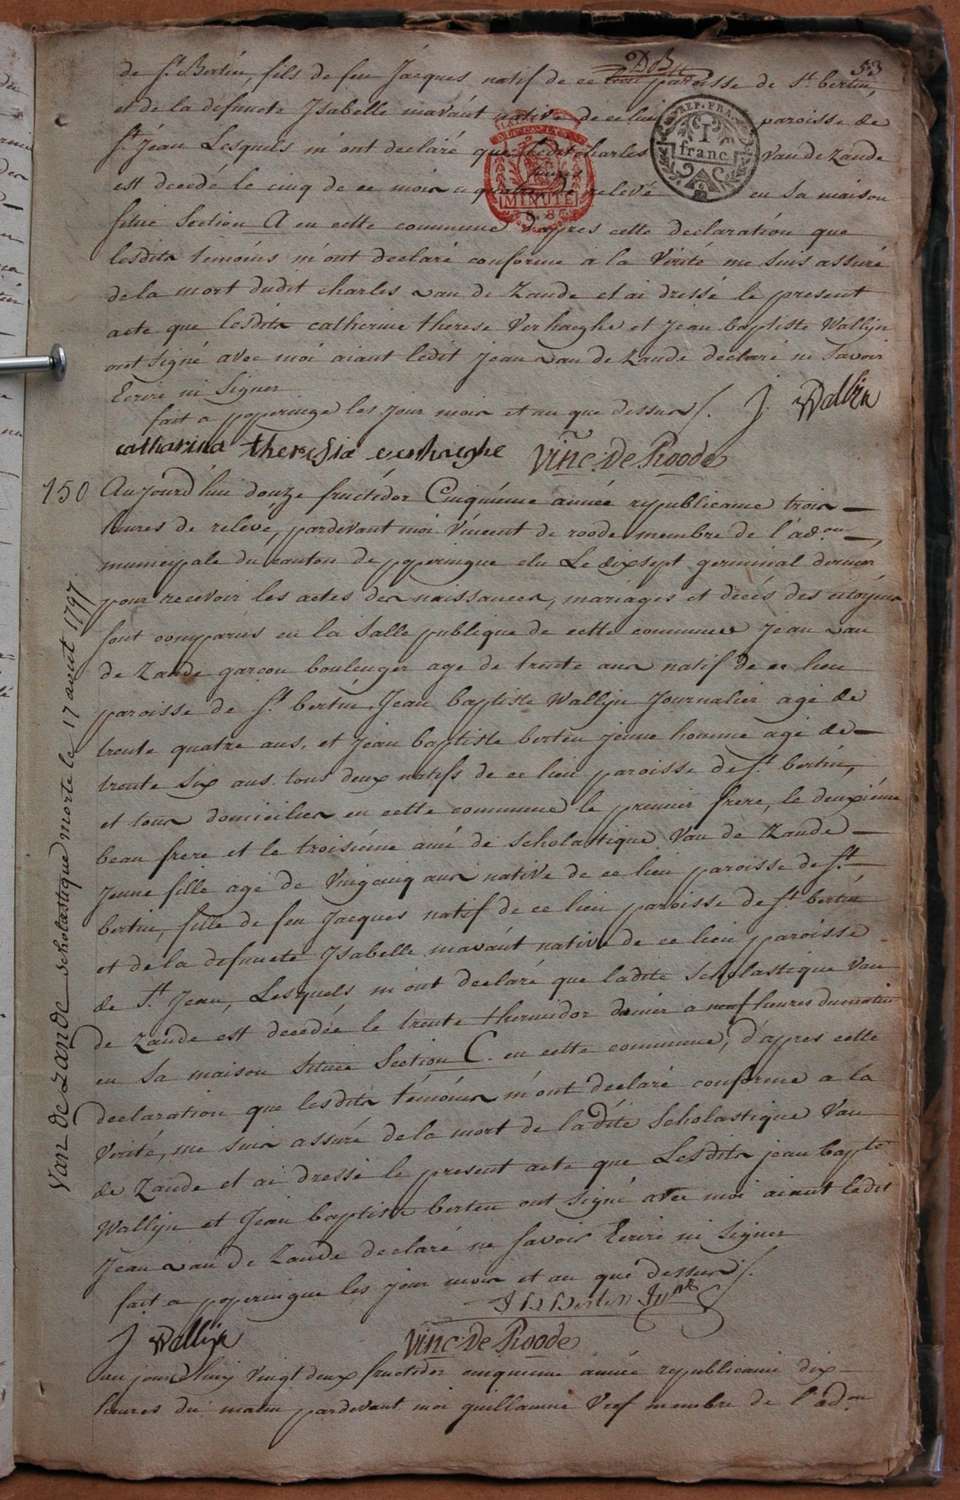 53
de St. Bertin, fils de feu Jacques natif de ce lieu paroisse de St. bertin,
et de la defuncte Isabelle mavaùt native de ce lieu paroisse de
St. Jean, Lesquels m'ont declaré que ledit charles van de Zande
est decedé le cinq de ce mois a quatre heures de relevé en sa maison
sitüé Section A en cette commune, d'apres cette declaration que
lesdits témoins m'ont declaré conforme a la Vérité me suis assuré
de la mort dudit charles van de Zande et ai dressé le present
acte que lesdits catherine therese Verhaeghe et Jean baptiste Wallyn
ont signé avec moi aiant ledit Jean van de Zande declaré ne savoir
Ecrire ni Signer
fait a poperinge les jour mois et an que dessus /. J. Wallyn
catharina theresia verhaeghe Vinc. De Roode
REP. FRA.
1
franc
MINUTE
150 Aujourd'hui douze fructidor Cinquiéme année republicaine trois
heures de relevé, pardevant moi Vincent de roode membre de l'adon
municipale du canton de poperingue elu Le dixsept germinal dernier
pour recevoir les actes des naissances, mariages et décés des citoyens
sont comparus en la Salle publique de cette commune Jean van
de Zande garçon boulenger age de trente ans natif de ce lieu
paroisse de St. bertin, Jean baptiste Wallyn Journalier agé de
trente quatre ans, et Jean baptiste bertin jeune homme agé de
trente Six ans tous deux natifs de ce lieu paroisse de St. bertin,
et tous domicilies en cette commune le premier frere, le deuxiéme
beau frere et le troisiéme ami de scholastique Van de Zande
Jeune fille agé de Vingcinq ans native de ce lieu paroisse de St.
bertin, fille de feu Jacques natif de ce lieu paroisse de St. bertin
et de la defuncte Ysabelle mavaùt native de ce lieu paroisse
de St. Jean, Lesquels m'ont declaré que ladite Scholastique Van
de Zande est decedée le trente thermidor dernier a neuf heures du matin
en sa maison Situeé Section C. en cette commune, d'apres cette
declaration que lesdits témoins m'ont declaré conforme a la
Verité, me suis assuré de la mort de ladite Scholastique Van
de Zande et ai dressé le present acte que Lesdits jean bapte
Wallyn et Jean baptiste bertin ont signé avec moi aiant ledit
Jean van de Zande declaré ne savoir Ecrire ni Signer
fait a poperingue les jour mois et an que dessus /.
J B Bertin
J. Wallyn Vinc De Roode
aujourdhuy vingt deux fructidor cinquieme année republicaine dix
heures du matin pardevant moi guillaume Vref membre de l'adon
Van De Zande scholastique morte le 17 aout 1797